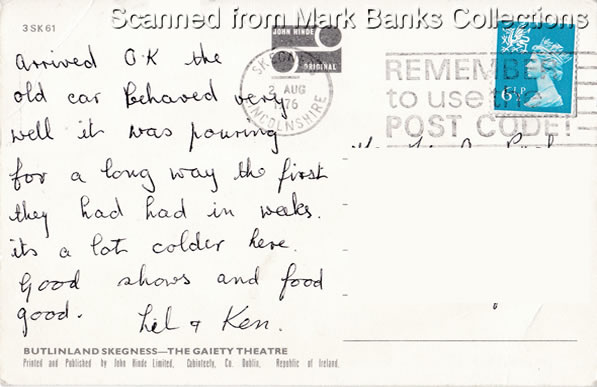 Scanned from Mark Banks Collections
3SK61
JOHN HINDE
ORIGINAL
2 AUG
1976
LINCOLNSHIRE
REMEMBER
to use the
POST CODE!
6½P
Arrived O.K the
old car Behaved very
well it was pouring
for a long way the first
they had had in weeks.
its a lot colder here.
Good shows and food
good. Lil & Ken.
BUTLINLAND SKEGNESS—THE GAIETY THEATRE
Printed and Published by John Hinde Limited, Cabinteely, Co. Dublin, Republic of Ireland.